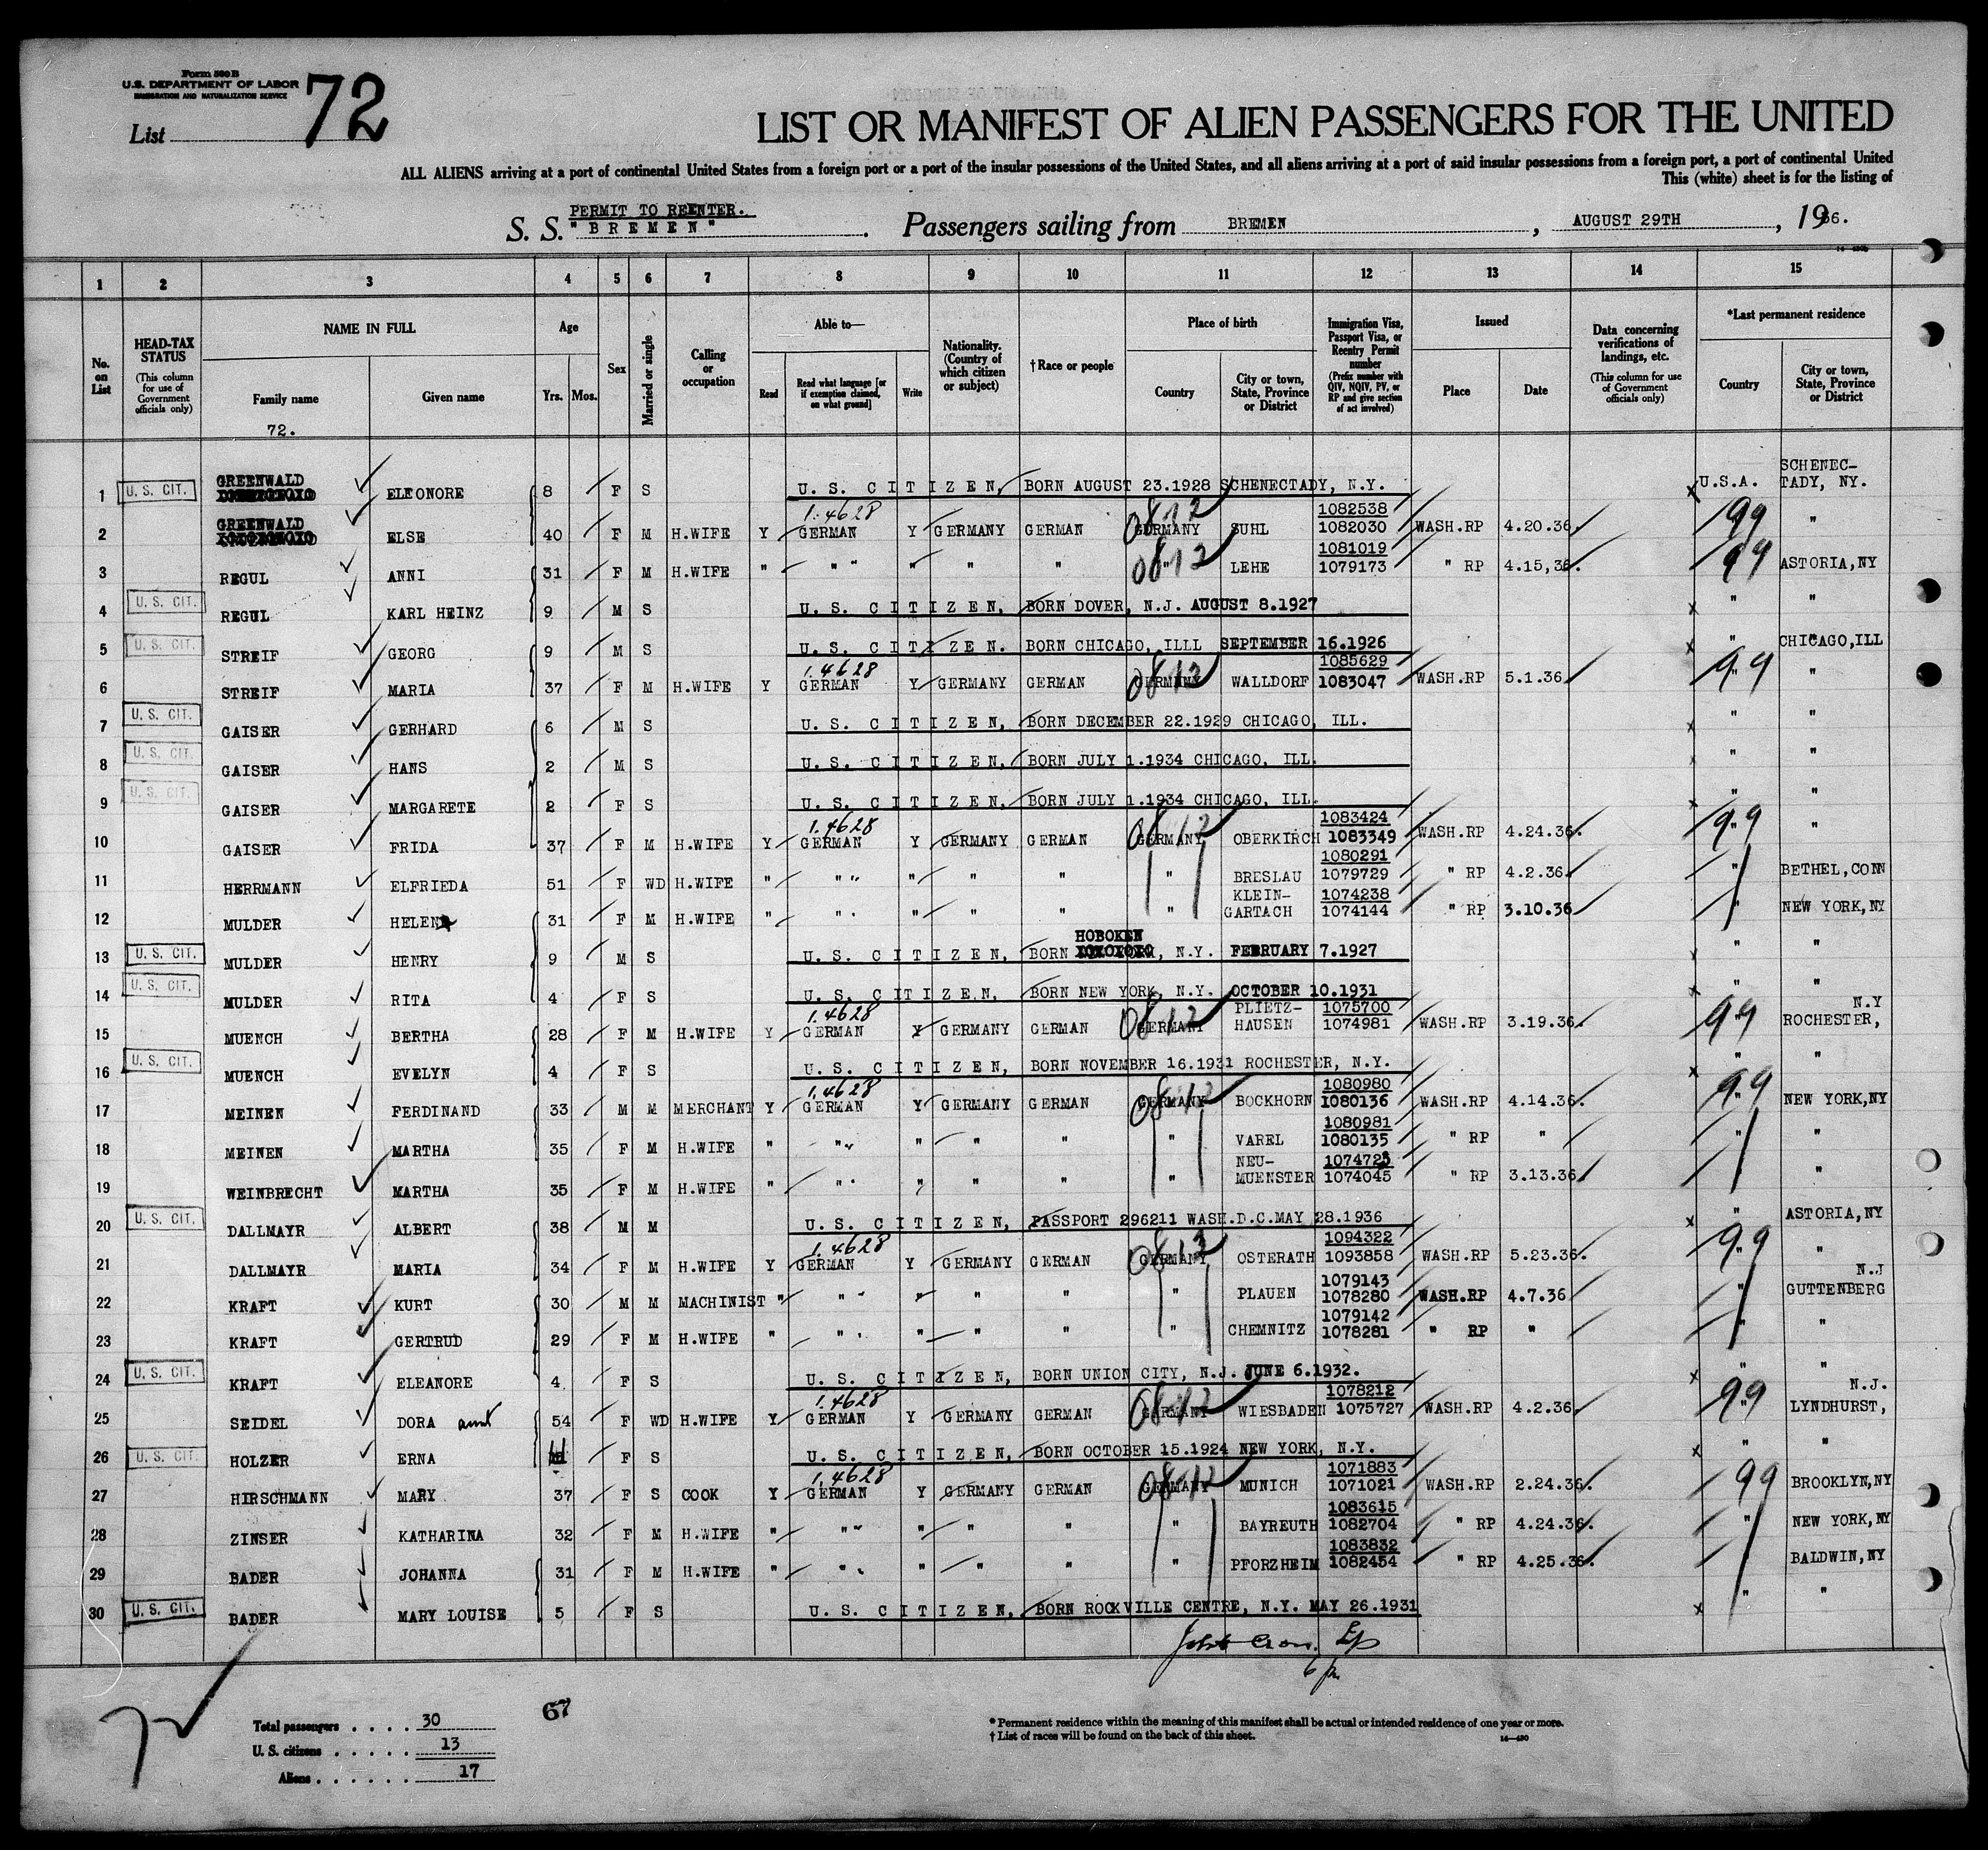 Form 500 B
U.S. DEPARTMENT OF LABOR
IMMIGRATION AND NATURALIZATION SERVICE
List 72
LIST OR MANIFEST OF ALIEN PASSENGERS FOR THE UNITED
ALL ALIENS arriving at a port of continental United States from a foreign port or a port of the insular possessions of the United States, and all aliens arriving at a port of said insular possessions from a foreign port, a port of continental United
This (white) sheet is for the listing of
PERMIT TO REENTER.
S. S. "BREMEN". Passengers sailing from BREMEN, AUGUST 29TH, 1936.
1 2 3 4 5 6 7 8 9 10 11 12 13 14 15
No. on List
HEAD-TAX STATUS (This column for use of Government officials only)
NAME IN FULL Family name Given name
72.
Age Yrs. Mos.
Sex
Married or single
Calling or occupation
Able to— Read Read what language [or if exemption claimed, on what ground] Write
Nationality. (Country of which citizen or subject)
† Race or people
Place of birth Country City or town, State, Province or District
Immigration Visa, Passport Visa, or Reentry Permit number (Prefix number with QIV, NQIV, PV, or RP and give section of act involved)
Issued Place Date
Data concerning verifications of landings, etc. (This column for use of Government officials only)
*Last permanent residence Country City or town, State, Province or District
1 U. S. CIT. GREENWALD ELEONORE 8 F S U. S. CITIZEN, BORN AUGUST 23.1928 SCHENECTADY, N.Y. x U.S.A. SCHENECTADY, NY.
2 GREENWALD ELSE 40 F M H.WIFE Y 1.4628 GERMAN Y GERMANY GERMAN 0812 GERMANY SUHL 1082538 1082030 WASH.RP 4.20.36. 99 "
3 REGUL ANNI 31 F M H.WIFE " " " " " " 0812 " LEHE 1081019 1079173 " RP 4.15,36. 99 ASTORIA,NY
4 U. S. CIT. REGUL KARL HEINZ 9 M S U. S. CITIZEN, BORN DOVER, N.J. AUGUST 8.1927 x " "
5 U. S. CIT. STREIF GEORG 9 M S U. S. CITIZEN. BORN CHICAGO, ILLL SEPTEMBER 16.1926 x " CHICAGO,ILL
6 STREIF MARIA 37 F M H.WIFE Y 1.4628 GERMAN Y GERMANY GERMAN 0812 GERMANY WALLDORF 1085629 1083047 WASH.RP 5.1.36 99 "
7 U. S. CIT. GAISER GERHARD 6 M S U. S. CITIZEN, BORN DECEMBER 22.1929 CHICAGO, ILL. x " "
8 U. S. CIT. GAISER HANS 2 M S U. S. CITIZEN, BORN JULY 1.1934 CHICAGO, ILL. x " "
9 U. S. CIT. GAISER MARGARETE 2 F S U. S. CITIZEN, BORN JULY 1.1934 CHICAGO, ILL. x " "
10 GAISER FRIDA 37 F M H.WIFE Y 1.4628 GERMAN Y GERMANY GERMAN 0812 GERMANY OBERKIRCH 1083424 1083349 WASH.RP 4.24.36. 99 "
11 HERRMANN ELFRIEDA 51 F WD H.WIFE " " " " " " " BRESLAU 1080291 1079729 " RP 4.2.36. " BETHEL,CONN
12 MULDER HELEN 31 F M H.WIFE " " " " " " KLEIN-GARTACH 1074238 1074144 " RP 3.10.36 " NEW YORK,NY
13 U. S. CIT. MULDER HENRY 9 M S U. S. CITIZEN, BORN HOBOKEN, N.Y. FEBRUARY 7.1927 x " "
14 U. S. CIT. MULDER RITA 4 F S U. S. CITIZEN, BORN NEW YORK, N.Y. OCTOBER 10.1931 x " "
15 MUENCH BERTHA 28 F M H.WIFE Y 1.4628 GERMAN Y GERMANY GERMAN 0812 GERMANY PLIETZ-HAUSEN 1075700 1074981 WASH.RP 3.19.36. 99 N.Y ROCHESTER,
16 U. S. CIT. MUENCH EVELYN 4 F S U. S. CITIZEN, BORN NOVEMBER 16.1931 ROCHESTER, N.Y. x " "
17 MEINEN FERDINAND 33 M M MERCHANT Y 1.4628 GERMAN Y GERMANY GERMAN 0812 GERMANY BOCKHORN 1080980 1080136 WASH.RP 4.14.36. 99 NEW YORK,NY
18 MEINEN MARTHA 35 F M H.WIFE " " " " " " " VAREL 1080981 1080135 " RP " " "
19 WEINBRECHT MARTHA 35 F M H.WIFE " " " " " " NEU-MUENSTER 1074723 1074045 " RP 3.13.36 " "
20 U. S. CIT. DALLMAYR ALBERT 38 M M U. S. CITIZEN, PASSPORT 296211 WASH.D.C.MAY 28.1936 x " ASTORIA,NY
21 DALLMAYR MARIA 34 F M H.WIFE Y 1.4628 GERMAN Y GERMANY GERMAN 0812 GERMANY OSTERATH 1094322 1093858 WASH.RP 5.23.36. 99 "
22 KRAFT KURT 30 M M MACHINIST " " " " " " " PLAUEN 1079143 1078280 WASH.RP 4.7.36 " N.J GUTTENBERG
23 KRAFT GERTRUD 29 F M H.WIFE " " " " " " CHEMNITZ 1079142 1078281 " RP " " "
24 U. S. CIT. KRAFT ELEANORE 4 F S U. S. CITIZEN, BORN UNION CITY, N.J. JUNE 6.1932. x " "
25 SEIDEL DORA aunt 54 F WD H.WIFE Y 1.4628 GERMAN Y GERMANY GERMAN 0812 GERMANY WIESBADEN 1078212 1075727 WASH.RP 4.2.36. 99 N.J. LYNDHURST,
26 U. S. CIT. HOLZER ERNA 11 F S U. S. CITIZEN, BORN OCTOBER 15.1924 NEW YORK, N.Y. x " "
27 HIRSCHMANN MARY 37 F S COOK Y 1.4628 GERMAN Y GERMANY GERMAN 0812 GERMANY MUNICH 1071883 1071021 WASH.RP 2.24.36. 99 BROOKLYN,NY
28 ZINSER KATHARINA 32 F M H.WIFE " " " " " " " BAYREUTH 1083615 1082704 " RP 4.24.36. " NEW YORK,NY
29 BADER JOHANNA 31 F M H.WIFE " " " " " " PFORZHEIM 1083832 1082454 " RP 4.25.36. " BALDWIN,NY
30 U. S. CIT. BADER MARY LOUISE 5 F S U. S. CITIZEN, BORN ROCKVILLE CENTRE, N.Y. MAY 26.1931 x " "
67
Total passengers . . . . 30
U. S. citizens . . . . . 13
Aliens . . . . . . 17
* Permanent residence within the meaning of this manifest shall be actual or intended residence of one year or more.
† List of races will be found on the back of this sheet.
14—430